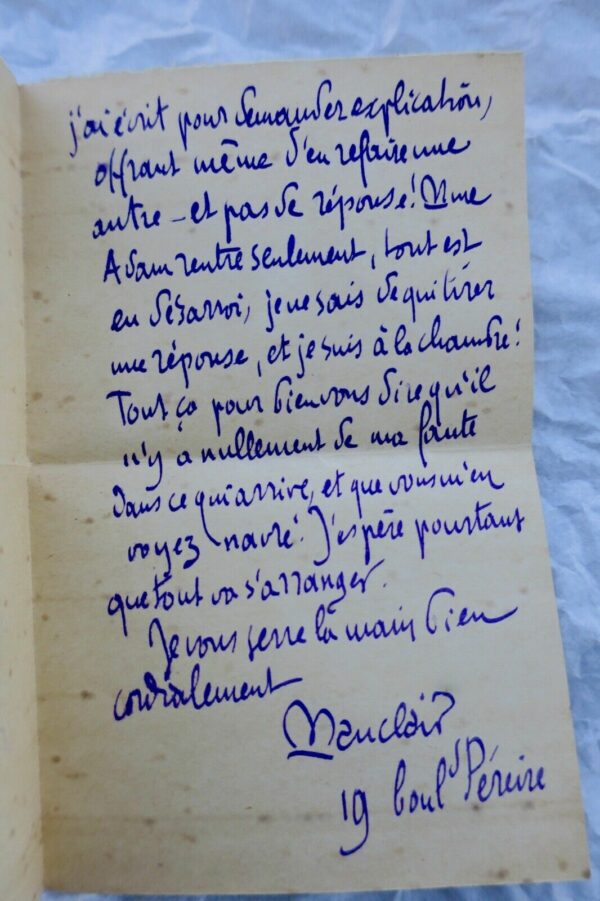 j'ai écrit pour demander explication,
offrant même d'en refaire une
autre – et pas de réponse! Mme
Adam rentre seulement, tout est
en désarroi, je ne sais de qui tirer
une réponse, et je suis à la chambre!
Tout ça pour bien vous dire qu'il
n'y a nullement de ma faute
dans ce qui arrive, et que vous m'en
voyez navré. J'espère pourtant
que tout va s'arranger.
Je vous serre la main bien
cordialement
Mauclair
19 boul^d Péreire